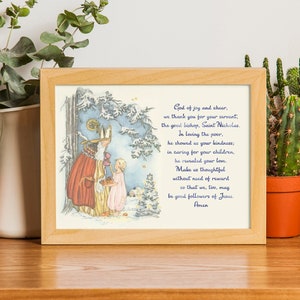 God of joy and cheer,
we thank you for your servant,
the good bishop, Saint Nicholas.
In loving the poor,
he showed us your kindness;
in caring for your children,
he revealed your love.
Make us thoughtful
without need of reward
so that we, too, may
be good followers of Jesus.
Amen